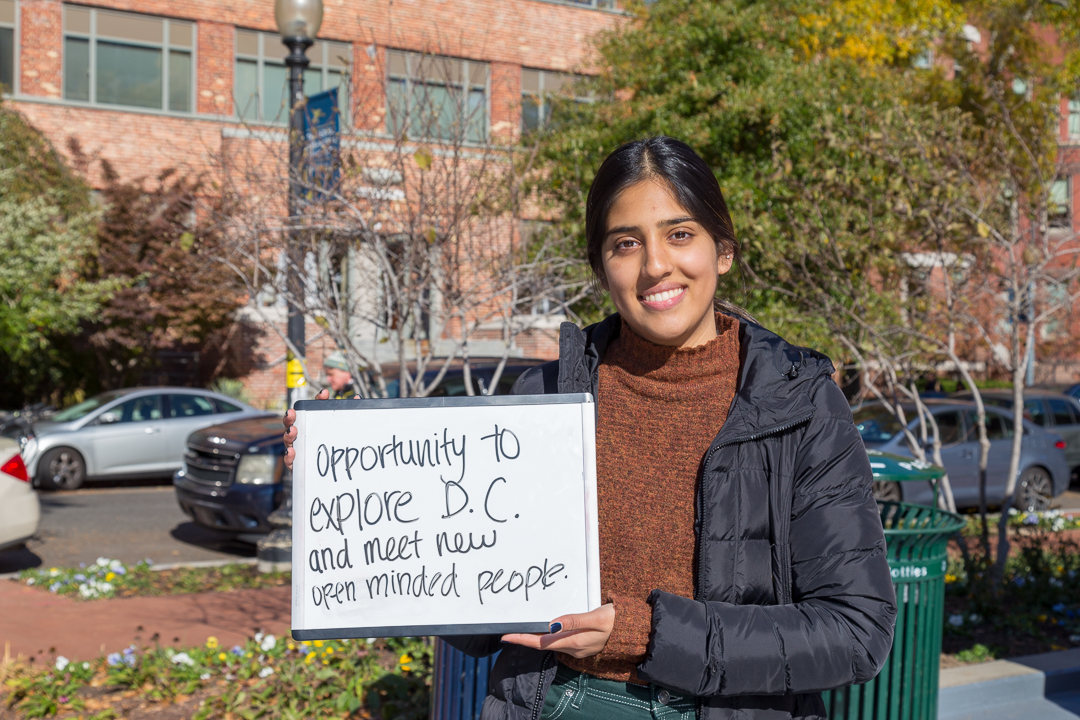 opportunity to
explore D.C.
and meet new
open minded people.
ottles